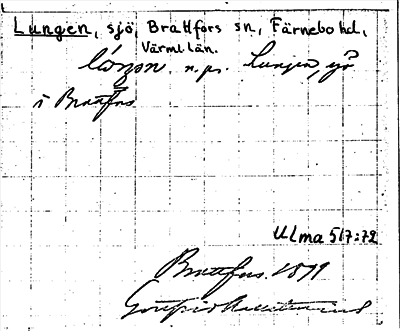 Lungen, sjö, Brattfors sn, Färnebo hd,
Värml. län.
n. pr. Lungen, sjö
i Brattfors
Ulma 517:72
Brattfors. 1899